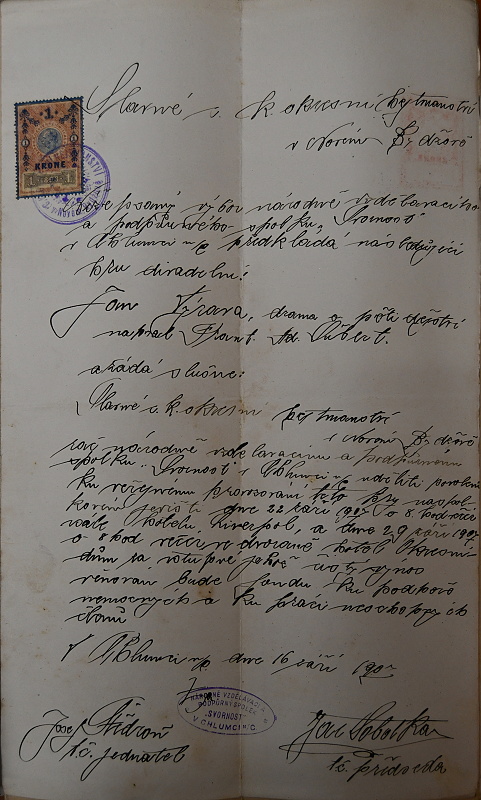 Slavné c. k. okresní hejtmanství
v Novém Bydžově
1
KRONE
Níže psaný výbor národně vzdělavacího
a podpůrného spolku „Svornost“
v Chlumci n/c předkládá následující
hru divadelní:
Jan Výrava, drama o pěti dějství
napsal Frant. Ad. Šubert.
a žádá slušně:
Slavné c. k. okresní hejtmanství
v Novém Bydžově
národně vzdělavacímu a podpůrnému
spolku „Svornost“ v Chlumci n/c uděliti povolení
ku veřejnému provozování této hry na spol
dne 22 září 1907 o 8. hod
hotelu Liverpol, a dne 29 září 1907
o 8 hod večer ve dvoraně hotelu Okresní
dům za
věnován bude fondu ku podpoře
nemocných a ku práci neschopných
členů
V Chlumci n/c dne 16 září 1907
NÁRODNĚ VZDĚLAVACÍ A
PODPŮRNÝ SPOLEK
„SVORNOST“
V CHLUMCI N/C
Josef
t. č. jednatel
Jos Sobotka
t. č. předseda